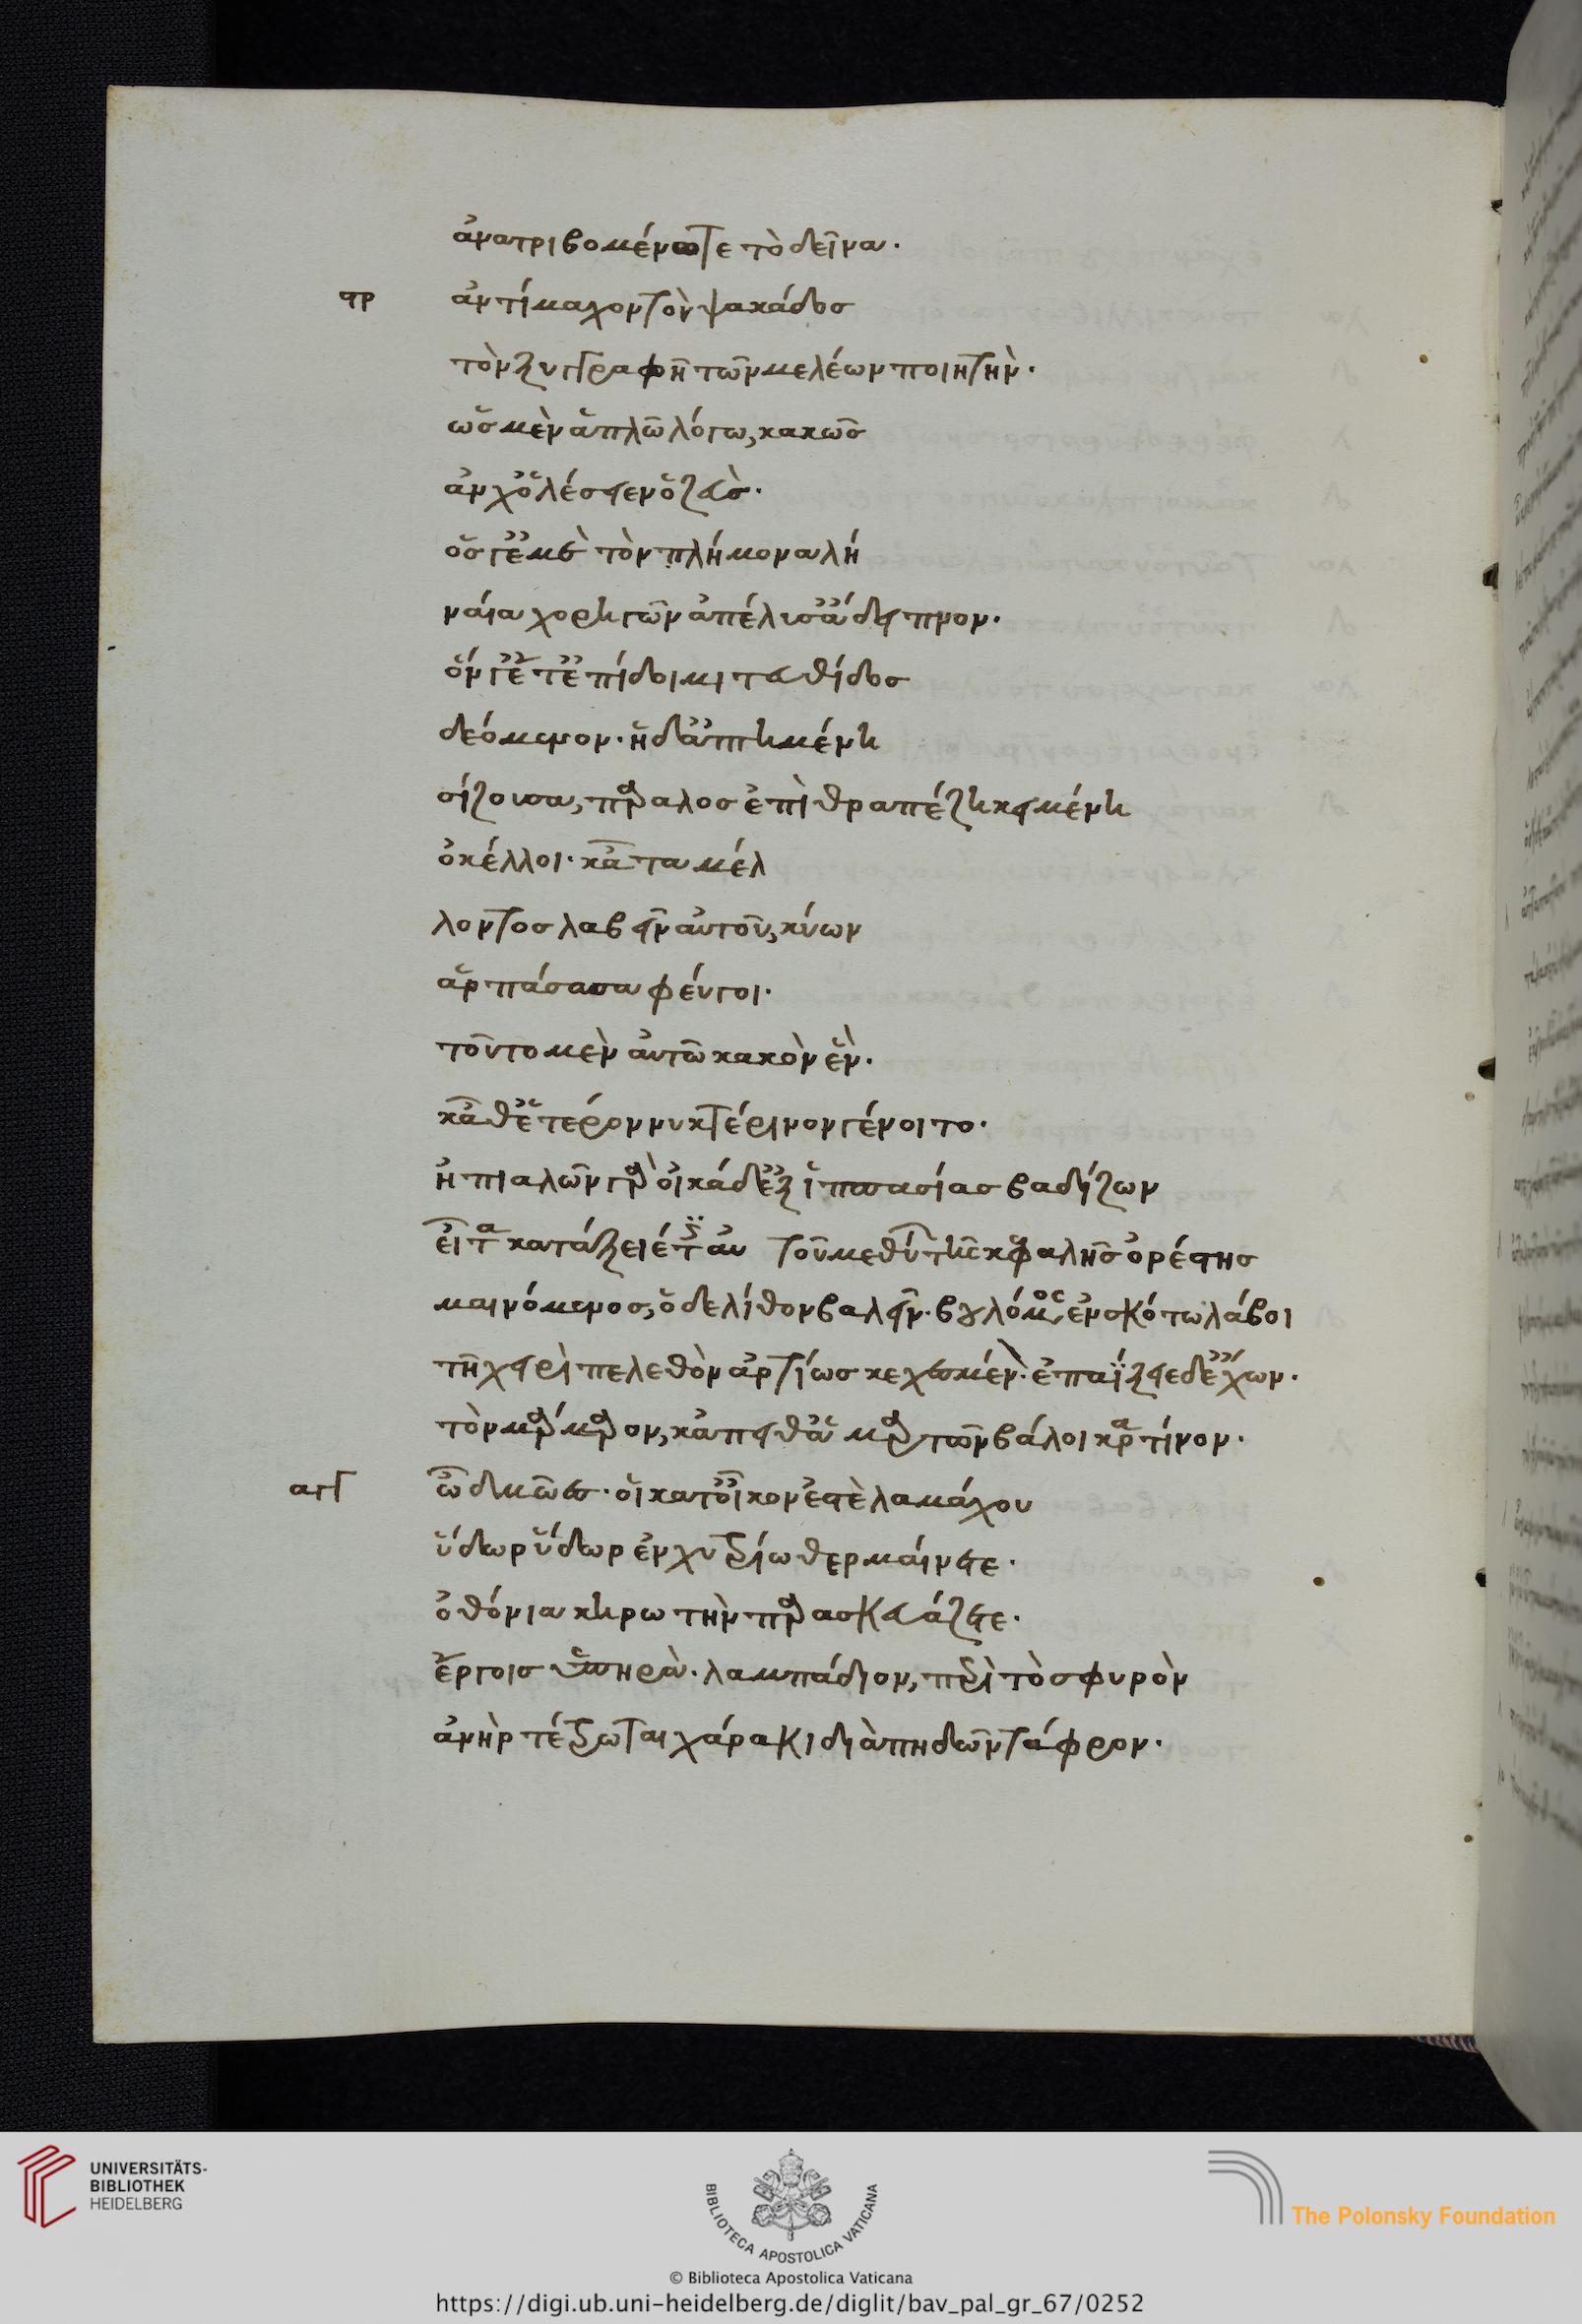 ἀνατριβομένω τε τὸ δεῖνα.
χρ ἀντίμαχον τὸν ψακάδοσ
τὸν ξυγγραφῆ τῶν μελέων ποιητὴν.
ὡσ μὲν ἁπλῶ λόγω, κακῶσ
ὅσ γ' ἐμὲ τὸν τλήμονα λή
ναια χορηγῶν ἀπέλυσ' ἄδειπνον.
ὅν γ' ἔτ' ἐπίδοιμι τευθίδοσ
δεόμενον. ἡ δ' ὠπτημένη
σίζουσα, πάραλοσ ἐπὶ τραπέζη κειμένη
ὀκέλλοι. κᾆτα μέλ
λοντοσ λαβεῖν αὐτοῦ, κύων
ἁρπάσασα φεύγοι.
τοῦτο μὲν αὐτῶ κακὸν ἓν.
κᾆθ' ἕτερον νυκτέρινον γένοιτο.
ἠπιαλῶν γὰρ οἴκαδ' ἐξ ἱππασίασ βαδίζων
εἶτα κατάξειέ τισ αὐτοῦ μεθύων τῆσ κεφαλῆσ ὀρέστησ
μαινόμενοσ, ὁ δὲ λίθον βαλεῖν. βουλόμενοσ ἐν σκότω λάβοι
τῆ χειρὶ πέλεθον ἀρτίωσ κεχεσμένον. ἐπαΐξειε δ' ἔχων.
τὸν μάρμαρον, κἄπειθ' ἁμαρτὼν βάλοι κρατίνον.
αγγ ὦ δμῶεσ. οἳ κατ' οἶκον ἐστὲ λαμάχου
ὕδωρ ὕδωρ ἐν χυτριδίω θερμαίνετε.
ὀθόνια κηρωτὴν παρασκευάζετε.
λαμπάδιον, περὶ τὸ σφυρὸν
ἀνὴρ τέτρωται χάρακι διαπηδῶν τάφρον.
UNIVERSITÄTS-
BIBLIOTHEK
HEIDELBERG
BIBLIOTECA APOSTOLICA VATICANA
The Polonsky Foundation
© Biblioteca Apostolica Vaticana
https://digi.ub.uni-heidelberg.de/diglit/bav_pal_gr_67/0252